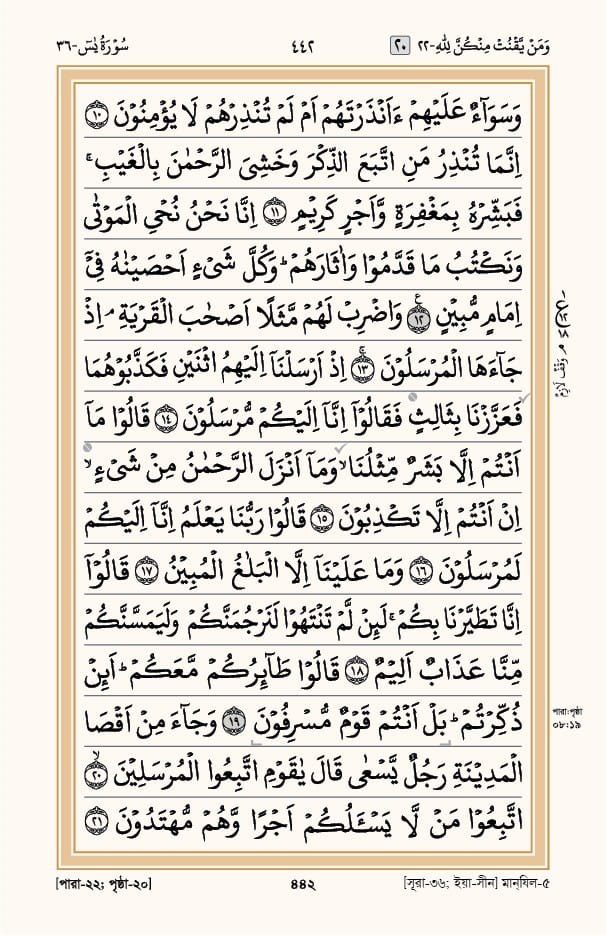 وَمَنْ يَّقْنُتْ مِنْكُنَّ لِلّٰهِ-٢٢ ٢٠ ٤٤٢ سُوْرَةُ يٰسٓ-٣٦
وَسَوَآءٌ عَلَيْهِمْ ءَاَنْذَرْتَهُمْ اَمْ لَمْ تُنْذِرْهُمْ لَا يُؤْمِنُوْنَ ١٠
اِنَّمَا تُنْذِرُ مَنِ اتَّبَعَ الذِّكْرَ وَخَشِىَ الرَّحْمٰنَ بِالْغَيْبِ ۚ
فَبَشِّرْهُ بِمَغْفِرَةٍ وَّاَجْرٍ كَرِيْمٍ ١١ اِنَّا نَحْنُ نُحْىِ الْمَوْتٰى
وَنَكْتُبُ مَا قَدَّمُوْا وَاٰثَارَهُمْ ؕ وَكُلَّ شَىْءٍ اَحْصَيْنٰهُ فِىْٓ
اِمَامٍ مُّبِيْنٍ ١٢ ع وَاضْرِبْ لَهُمْ مَّثَلًا اَصْحٰبَ الْقَرْيَةِ ۘ اِذْ
جَآءَهَا الْمُرْسَلُوْنَ ١٣ ۚ اِذْ اَرْسَلْنَآ اِلَيْهِمُ اثْنَيْنِ فَكَذَّبُوْهُمَا
فَعَزَّزْنَا بِثَالِثٍ فَقَالُوْٓا اِنَّآ اِلَيْكُمْ مُّرْسَلُوْنَ ١٤ قَالُوْا مَآ
اَنْتُمْ اِلَّا بَشَرٌ مِّثْلُنَا ۙ وَمَآ اَنْزَلَ الرَّحْمٰنُ مِنْ شَىْءٍ ۙ
اِنْ اَنْتُمْ اِلَّا تَكْذِبُوْنَ ١٥ قَالُوْا رَبُّنَا يَعْلَمُ اِنَّآ اِلَيْكُمْ
لَمُرْسَلُوْنَ ١٦ وَمَا عَلَيْنَآ اِلَّا الْبَلٰغُ الْمُبِيْنُ ١٧ قَالُوْٓا
اِنَّا تَطَيَّرْنَا بِكُمْ ۚ لَئِنْ لَّمْ تَنْتَهُوْا لَنَرْجُمَنَّكُمْ وَلَيَمَسَّنَّكُمْ
مِّنَّا عَذَابٌ اَلِيْمٌ ١٨ قَالُوْا طَآئِرُكُمْ مَّعَكُمْ ؕ اَئِنْ
ذُكِّرْتُمْ ؕ بَلْ اَنْتُمْ قَوْمٌ مُّسْرِفُوْنَ ١٩ وَجَآءَ مِنْ اَقْصَا
الْمَدِيْنَةِ رَجُلٌ يَّسْعٰى قَالَ يٰقَوْمِ اتَّبِعُوا الْمُرْسَلِيْنَ ٢٠ ۙ
اتَّبِعُوْا مَنْ لَّا يَسْـَٔلُكُمْ اَجْرًا وَّهُمْ مُّهْتَدُوْنَ ٢١
م وَقْفِ لَازِمْ
পারা:পৃষ্ঠা
০৮:১৯
[পারা-২২; পৃষ্ঠা-২০] ৪৪২ [সূরা-৩৬; ইয়া-সীন] মান্‌যিল-৫